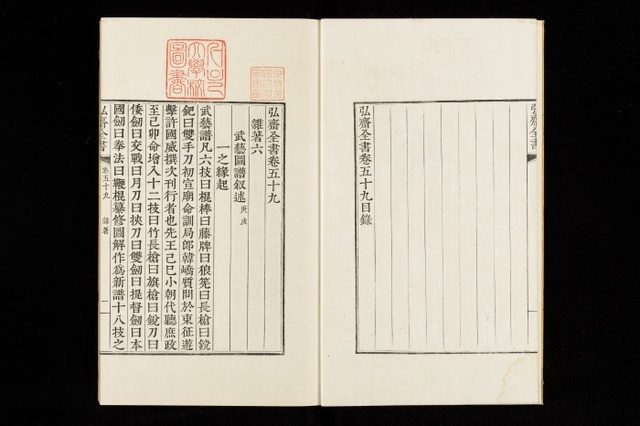 弘齋全書
弘齋全書卷五十九目錄
圖書
弘齋全書卷五十九
雜著六
武藝圖譜叙述 庚戌
一之緣起
武藝譜凡六技曰棍棒曰藤牌曰狼筅曰長槍曰鋭
鈀曰雙手刀初宣廟命訓局郎韓嶠質問於東征遊
擊許國威撰次刊行者也先王己巳小朝代聽庶政
至己卯命增入十二技曰竹長槍曰旗槍曰銳刀曰
倭劒曰交戰曰月刀曰挾刀曰雙劒曰提督劒曰本
國劒曰拳法曰鞭棍纂修圖解作爲新譜十八技之
弘齋全書 卷五十九 雜著 一